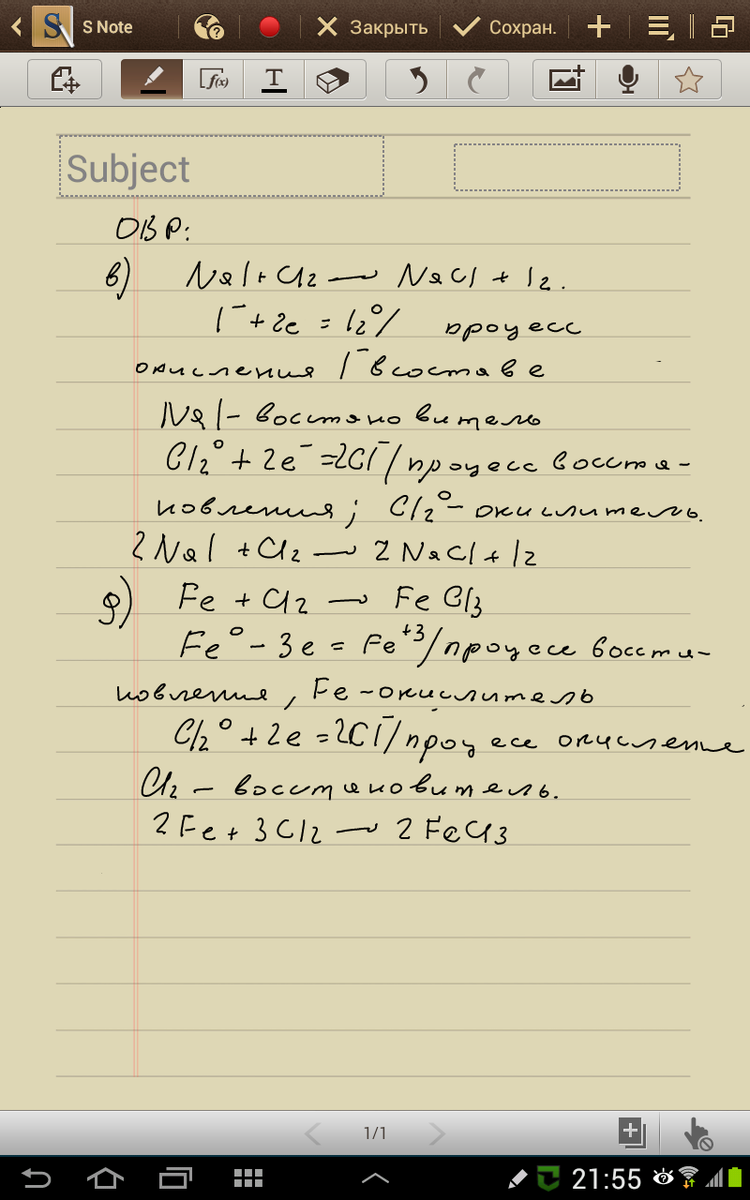 S Note
Закрыть
Сохран.
f(x)
T
Subject
ОВР:
в) NaI + Cl2 → NaCl + I2.
I⁻ + 2e = I2⁰/ процесс
окисления I⁻ в составе
NaI - восстановитель
Cl2⁰ + 2e⁻ = 2Cl⁻/ процесс восста-
новления; Cl2⁰ - окислитель.
2NaI + Cl2 → 2NaCl + I2
д) Fe + Cl2 → FeCl3
Fe⁰ - 3e = Fe⁺³/ процесс восста-
новления, Fe - окислитель
Cl2⁰ + 2e = 2Cl⁻/ процесс окисление
Cl2 - восстановитель.
2Fe + 3Cl2 → 2FeCl3
1/1
21:55